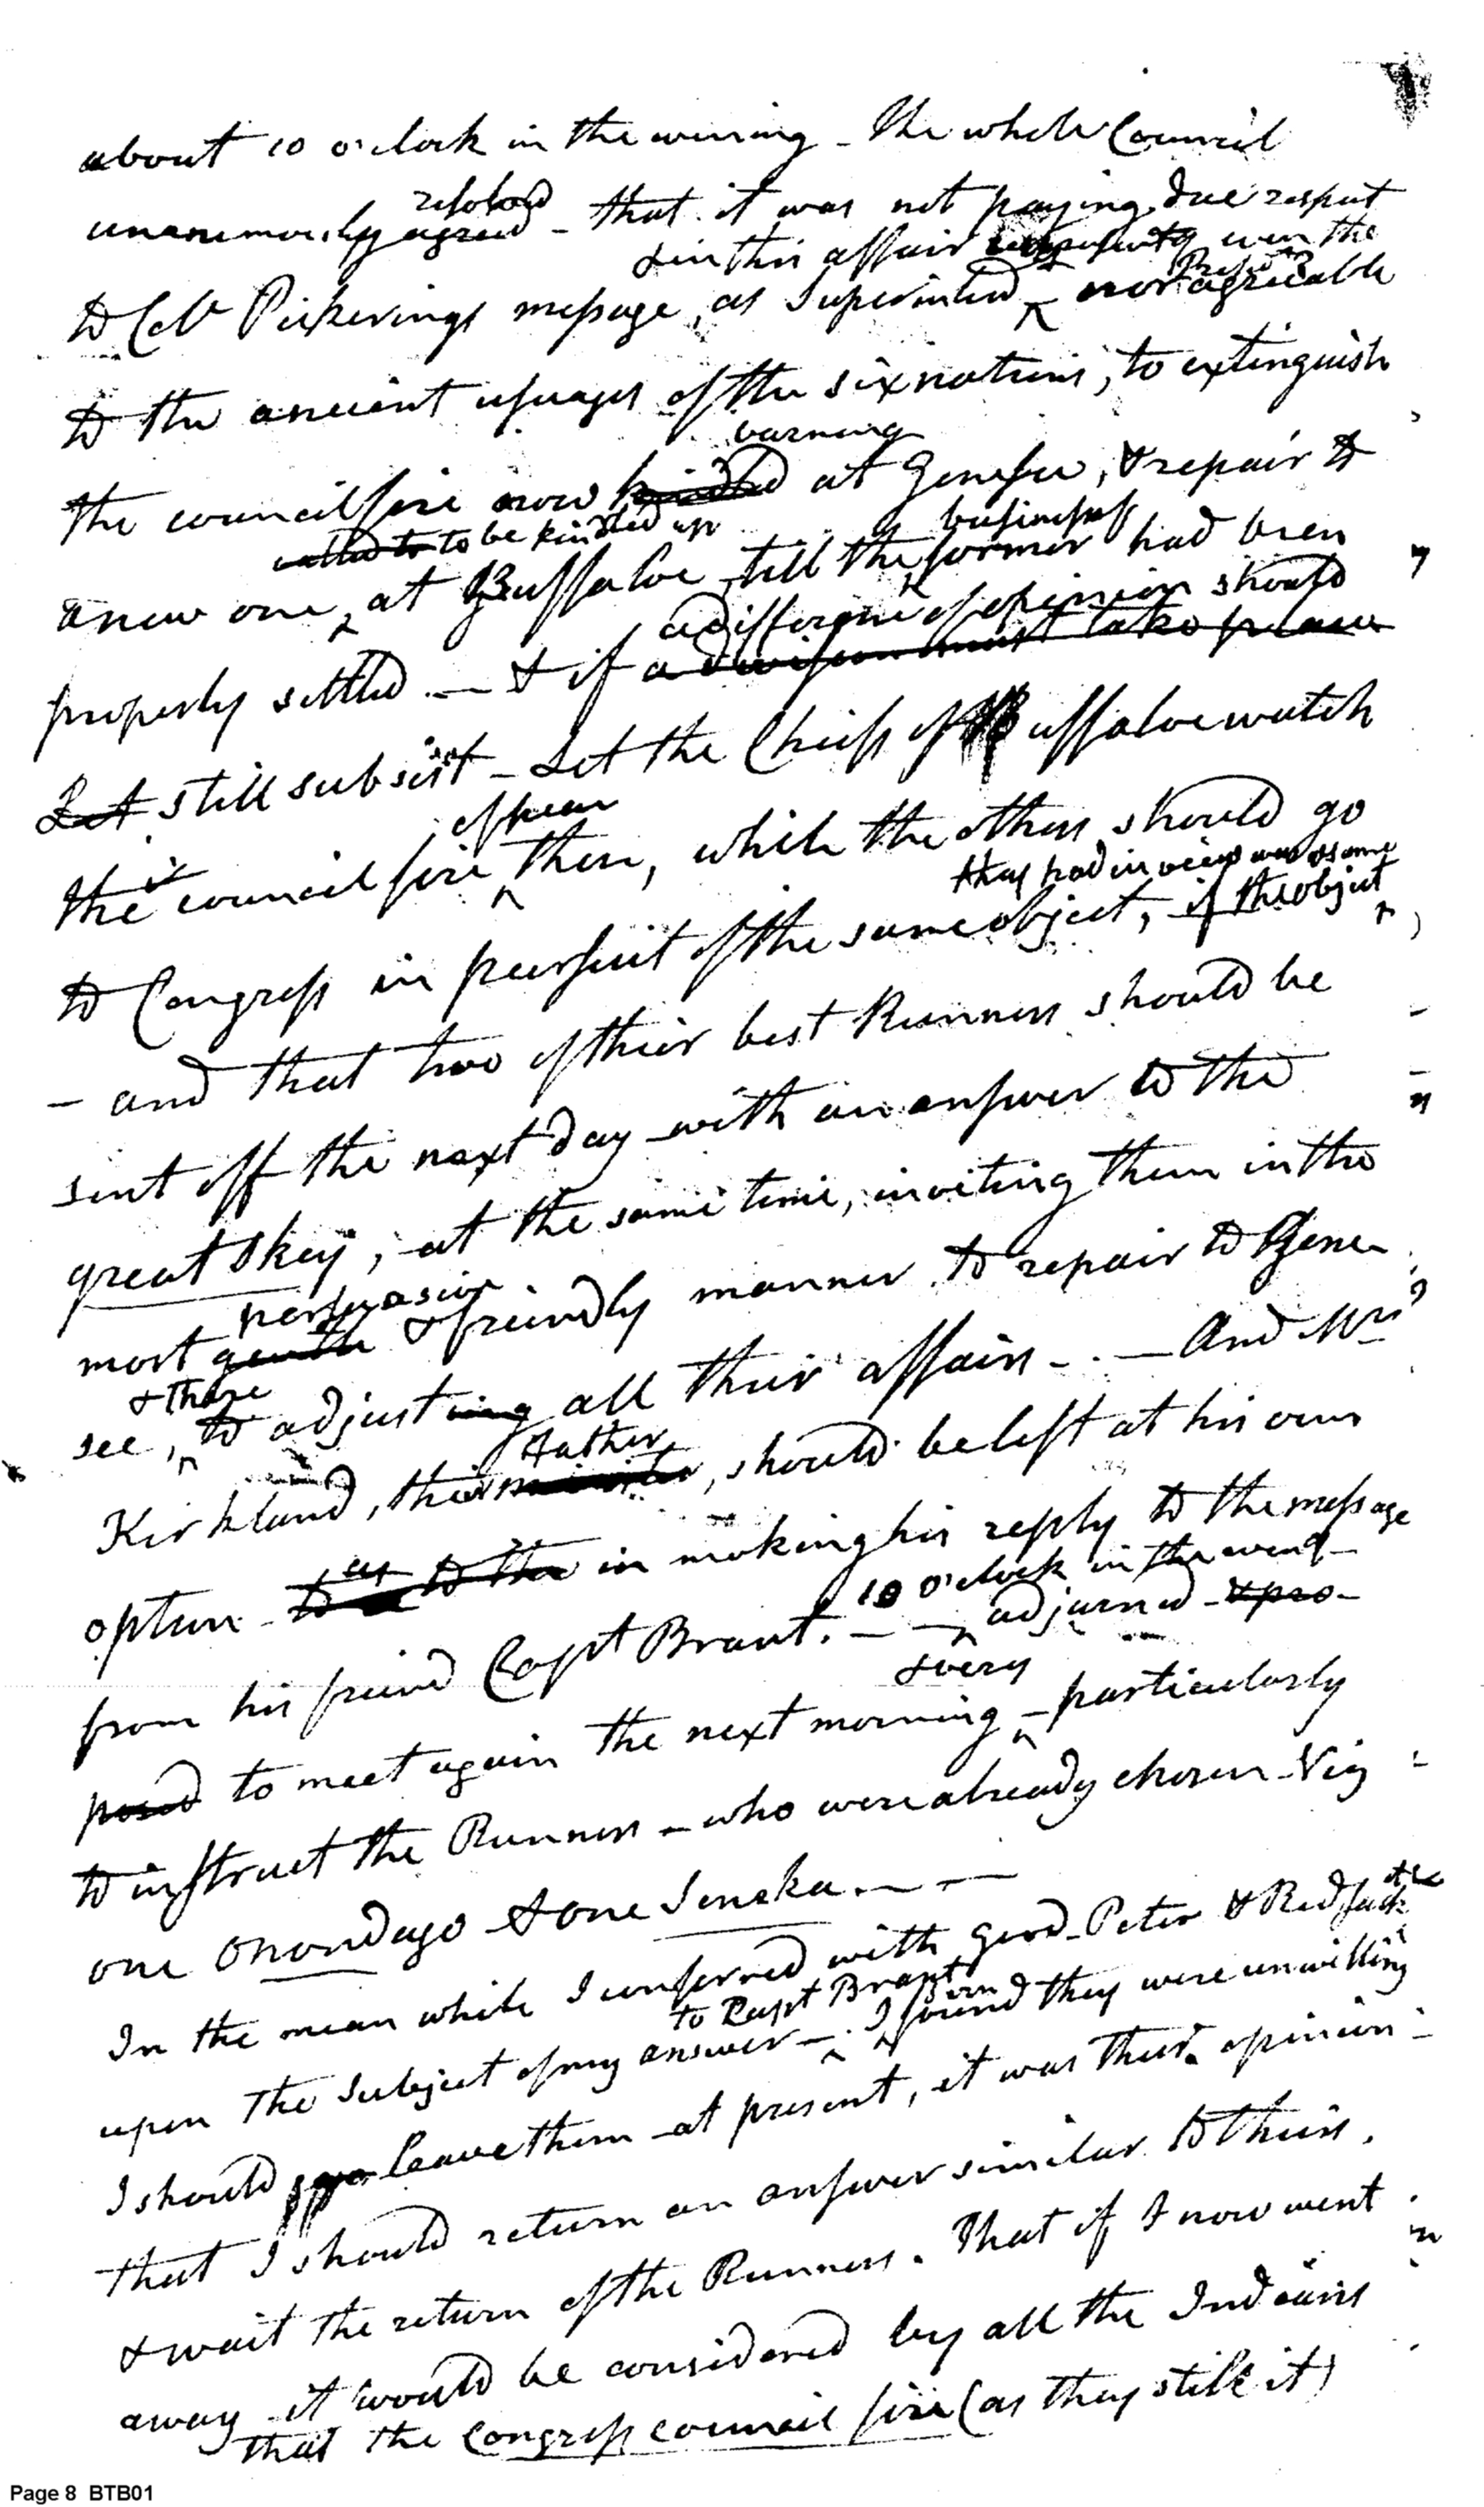 about 10 o'clock in the evening - The whole Council
resolved
unanimously agreed - that it was not paying due respect
& in this affair even the
to Col Pickerings message, as Superintend nor agreeable
to the ancient usuages of the six nations, to extinguish
burning
the council fire now kindled at Genesee, & repair to
called to to be kindled up business
a new one, at Buffaloe till the former had been
a difference of opinion should
properly settled. — & if a division must take place
Let still subsist - Let the Chiefs of Buffaloe watch
of peace
the council fire there, while the others should go
they had in view was same
to Congress in pursuit of the same object, if the object
- and that two of their best Runners should be
sent off the next day with an answer to the
great sky, at the same time, inviting them in the
persuasive
most gentle & friendly manner to repair to Gene
& there
see, to adjusting all their affairs - . — And Mr
Father
Kirkland, their minister, should be left at his own
as
option - to the in making his reply to the message
10 o'clock in the eveng -
from his friend Capt Brant. — — adjurned - & pro-
& very
posed to meet again the next morning - particularly
to instruct the Runners - who were already chosen - Viz
one Onondago & one Seneka. — —
In the mean while I conferred with good Peter & Red Jacket
to Capt Brant
upon the subject of my answer - I found they were unwilling
I should go leave them at present, it was their opinion -
that I should return an answer similar to theirs,
& wait the return of the Runners. That if I now went
away it would be considered by all the Indians
that the Congress council fire (as they stile it)
Page 8 BTB01